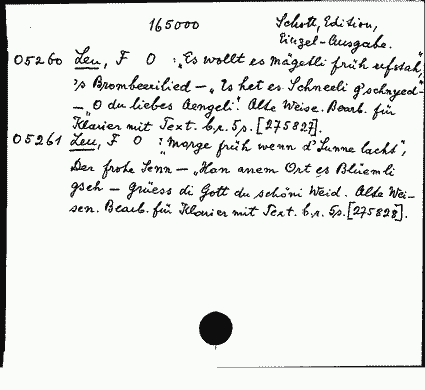 165000 Schott, Edition,
Einzel-Ausgabe.
05260 Leu, F O : „Es wollt es Mägetli früh ufstah",
's Brombeerilied – „Es het es Schneeli g'schnyed–
– „O du liebes Aengeli". Alte Weise. Bearb. für
Klavier mit Text. b.r. 5s. [275827].
05261 Leu, F O : „Marge früh wenn d'Sunne lacht",
Der frohe Senn – „Han anem Ort es Blüemli
gseh – Grüess di Gott du schöni Weid. Alte Wei-
sen. Bearb. für Klavier mit Text. b.r. 5s. [275828].